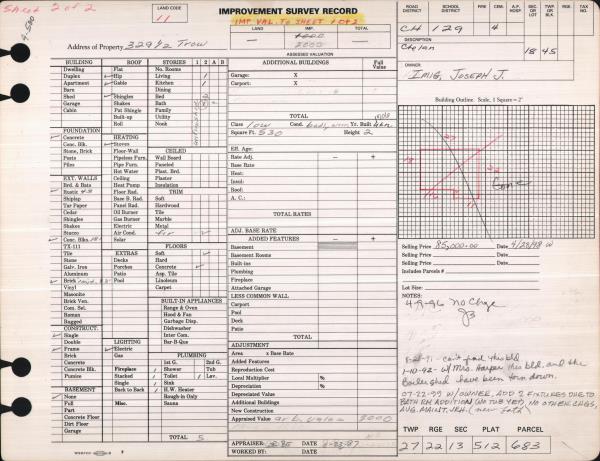 Sheet 2 of 2
LAND CODE
11
IMPROVEMENT SURVEY RECORD
IMP VAL. TO SHEET 1 OF 2
LAND
IMP.
TOTAL
8000
Address of Property 329 1/2 Trow
ASSESSED VALUATION
ROAD DISTRICT
SCHOOL DISTRICT
FIRE
CEM.
A.P. HOSP
TWP OR BLK
REG.
TAX NO.
CH 129 4
18 45
Chelan
OWNER:
Imig, Joseph J.
BUILDING
Dwelling
Duplex
Apartment
Barn
Shed
Garage
Cabin
ROOF
Flat
Hip
Gable
Dirt
Shingles
Shakes
Pat Shingle
Built-up
Roll
STORIES 1 2 A B
No. Rooms
Living
Kitchen
Dining
Bed 2
Bath
Family
Utility
Nook
FOUNDATION
Concrete
Conc. Blk.
Stone, Brick
Posts
Piles
HEATING
Stoves
Floor-Wall
Pipeless Furn.
Pipe Furn.
Hot Water
Ceiling
Heat Pump
Floor Rad.
Base B. Rad.
Panel Rad.
Oil Burner
Gas Burner
Electric
Air Cond.
Solar
CEILED
Wall Board
Paneled
Plast. Brd.
Plaster
Insulation
TRIM
Soft
Hardwood
Tile
Marble
Metal
fir
EXT. WALLS
Brd. & Bats
Rustic
Shiplap
Tar Paper
Cedar
Shingles
Shakes
Stucco
Conc. Blks.
TX-111
Tile
Stone
Galv. Iron
Aluminum
Brick
Vinyl
Masonite
Brick Ven.
Com. Sel.
Roman
Rugged
EXTRAS
Decks
Porches
Patio
Pool
FLOORS
Soft
Hard
Concrete
Asp. Tile
Linoleum
Carpet
BUILT-IN APPLIANCES
Range & Oven
Hood & Fan
Garbage Disp.
Dishwasher
Inter Com.
Bar-B-Que
CONSTRUCT.
Single
Double
Frame
Brick
Concrete
Concrete Blk.
Pumice
LIGHTING
Electric
Gas
Fireplace
Stacked
Single
Back to Back
Misc.
PLUMBING
1st G. 2nd G.
Shower Tub
Toilet Lav.
Sink
H.W. Heater
Rough-in Only
Sauna
BASEMENT
None
Full
Part
Concrete Floor
Dirt Floor
Garage
TOTAL 5
ADDITIONAL BUILDINGS
Full Value
Garage: X
Carport: X
TOTAL
Class low Cond. badly worn Yr. Built unkn
Square Ft. 530 Height 2
Eff. Age:
Rate Adj. — +
Base Rate
Heat:
Insul:
Roof:
A. C.:
TOTAL RATES
ADJ. BASE RATE
ADDED FEATURES — +
Basement
Basement Rooms
Built-ins
Plumbing
Fireplace
Attached Garage
LESS COMMON WALL
Carport
Pool
Deck
Patio
TOTAL
ADJUSTMENT
Area x Base Rate
Added Features
Reproduction Cost
Local Multiplier %
Depreciation %
Depreciated Value
Additional Buildings
New Construction
Appraised Value arb. value 8000
APPRAISER: DATE
WORKED BY: DATE
Building Outline. Scale, 1 Square = 2'
27
18
16
Conc
Selling Price 85,000.00 Date 4/28/98 W
Selling Price Date
Selling Price Date
Includes Parcels #
Lot Size:
NOTES:
4-9-96 No Chge
JB
can't find this bld
1-10-92 - w/ Mrs. Harper this bld. and the
Boiler shed have been torn down.
07-22-99 W/OWNER, ADD 2 FIXTURES DUE TO
BATH RM ADDITION (NO TUB YET), NO OTHER CHGS,
AUG. MAINT. JRH.
TWP RGE SEC PLAT PARCEL
27 22 13 512 683